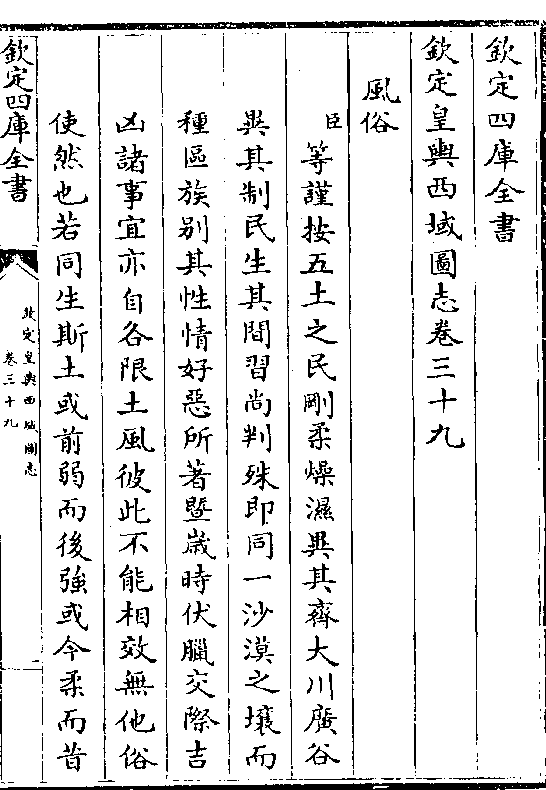 欽定四庫全書
欽定皇輿西域圖志卷三十九
風俗
臣等謹按五土之民剛柔燥濕異其齊大川廣谷
異其制民生其間習尚判殊即同一沙漠之壤而
種區族别其性情好惡所著暨嵗時伏臘交際吉
凶諸事宜亦自各限土風彼此不能相效無他俗
使然也若同生斯土或前弱而後強或今柔而昔
欽定四庫全書
欽定皇輿西域圖志
卷三十九